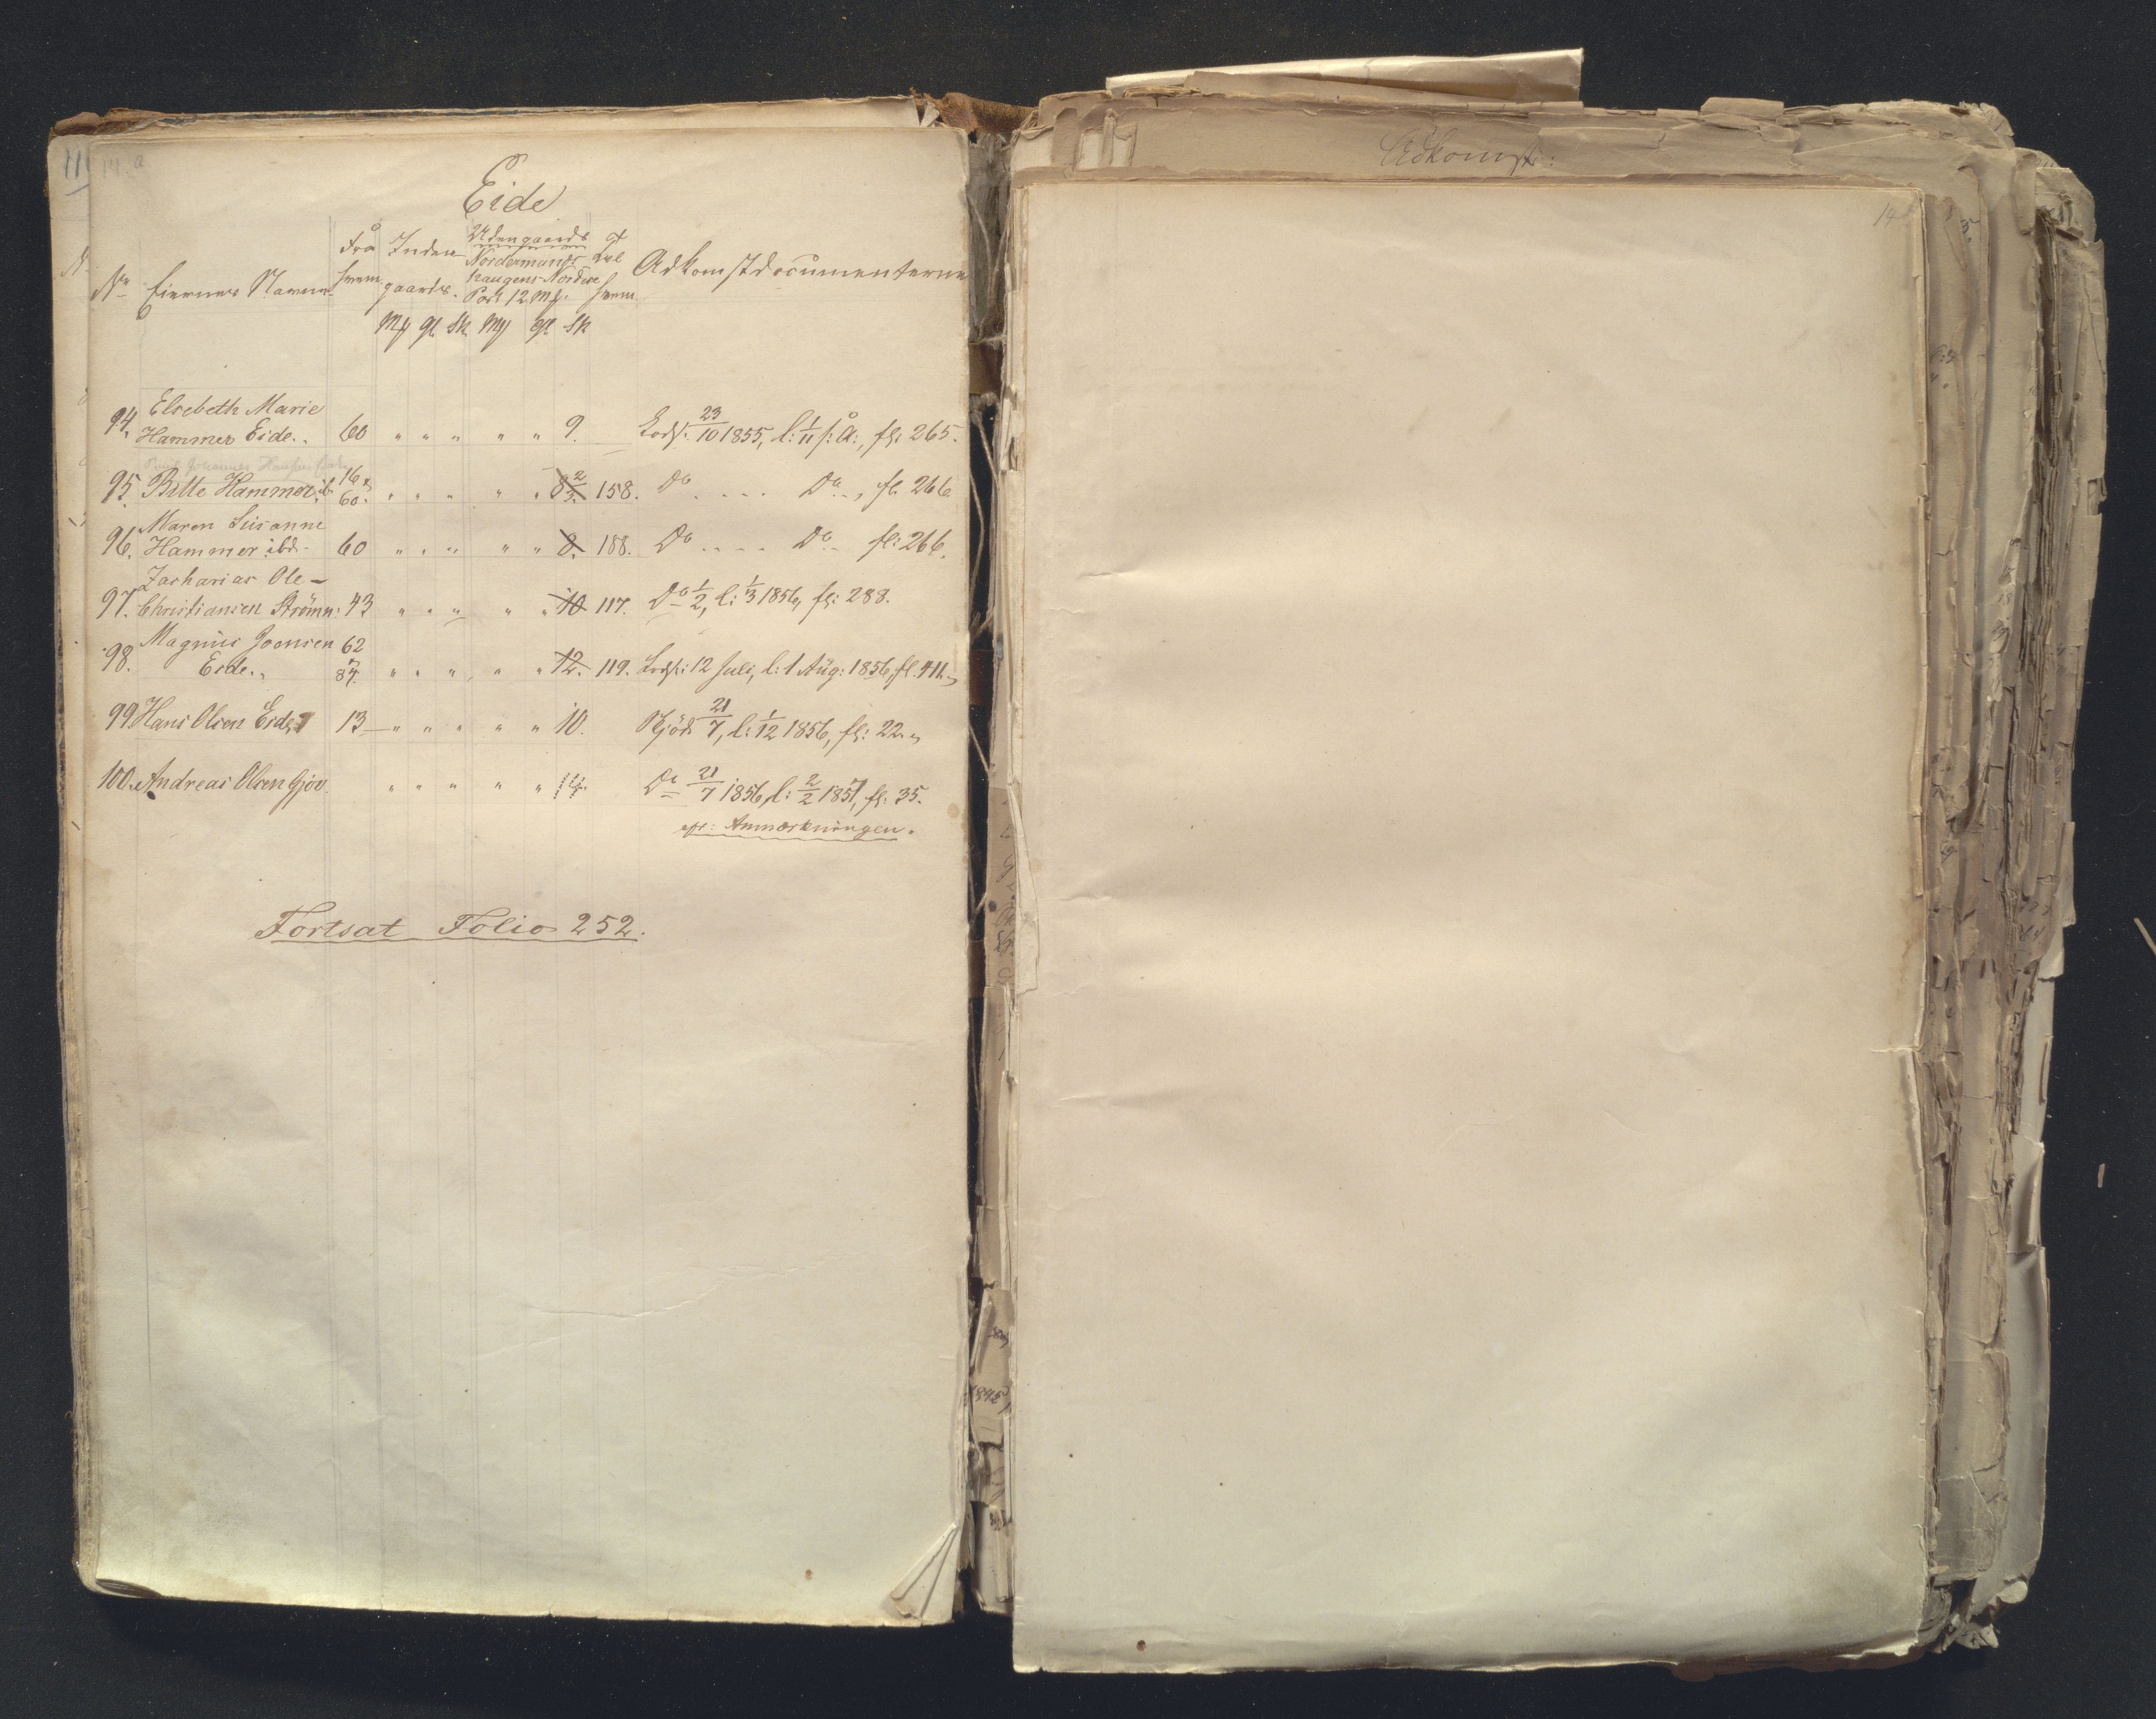 14 a
Eide
No Eiernes Navne Fra hvem Inden gaards. Udengaards Nordermands haugens Nordre Part 12 Mk. Til hvem Adkomstdocumenterne
Mk gl. Sk Mk gl Sk
94. Elsebeth Marie
Hammer Eide. 60 " " " " " 9. Lods: 23/10 1855, l: 1/11 s: A:, fl: 265.
95. Bille Hammer ib. 16 & 60. " " " " " 8 2/3. 158. Do .... Do.., fl. 266
96. Maren Susanne
Hammer ibd. 60 " " " " " 8. 188. Do .... Do.. fl: 266.
97. Zacharias Ole-
Christiansen Strömn: 43 " " " " " 10 117. Do 1/2, l: 1/3 1856, fl: 288.
98. Magnus Joensen 62
Eide. 87. " " " " " 12. 119. Lods: 12 Juli, l: 1 Aug: 1856, fl. 411.
99 Hans Olsen Eide 13 " " " " " 10. Skjöde 21/7, l: 1/12 1856, fl: 22.
100. Andreas Olsen Gjov. " " " " " 14. Do 21/7 1856, l: 2/2 1857, fl: 35.
cfr: Anmærkningen.
Fortsat Folio 252.
Adkomst:
14
1845